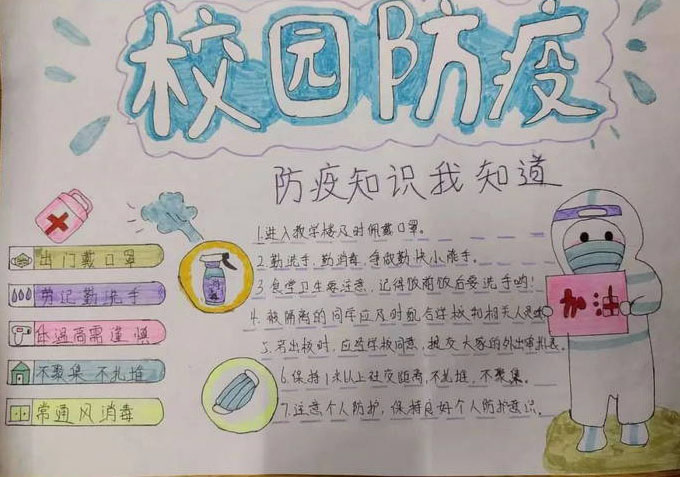 校园防疫
防疫知识我知道
出门戴口罩
劳记勤洗手
体温高需谨慎
不聚集 不扎堆
常通风消毒
1.进入教学楼及时佩戴口罩。
2.勤洗手,勤消毒,争做勤快小能手。
3.食堂卫生要注意,记得饭前饭后要洗手哟!
4.被隔离的同学应及时配合学校和相关人员
5.若出校时,应经学校同意,提交大家的外出审批表。
6.保持1米以上社交距离,不扎堆,不聚集。
7.注意个人防护,保持良好个人防护意识。
加油